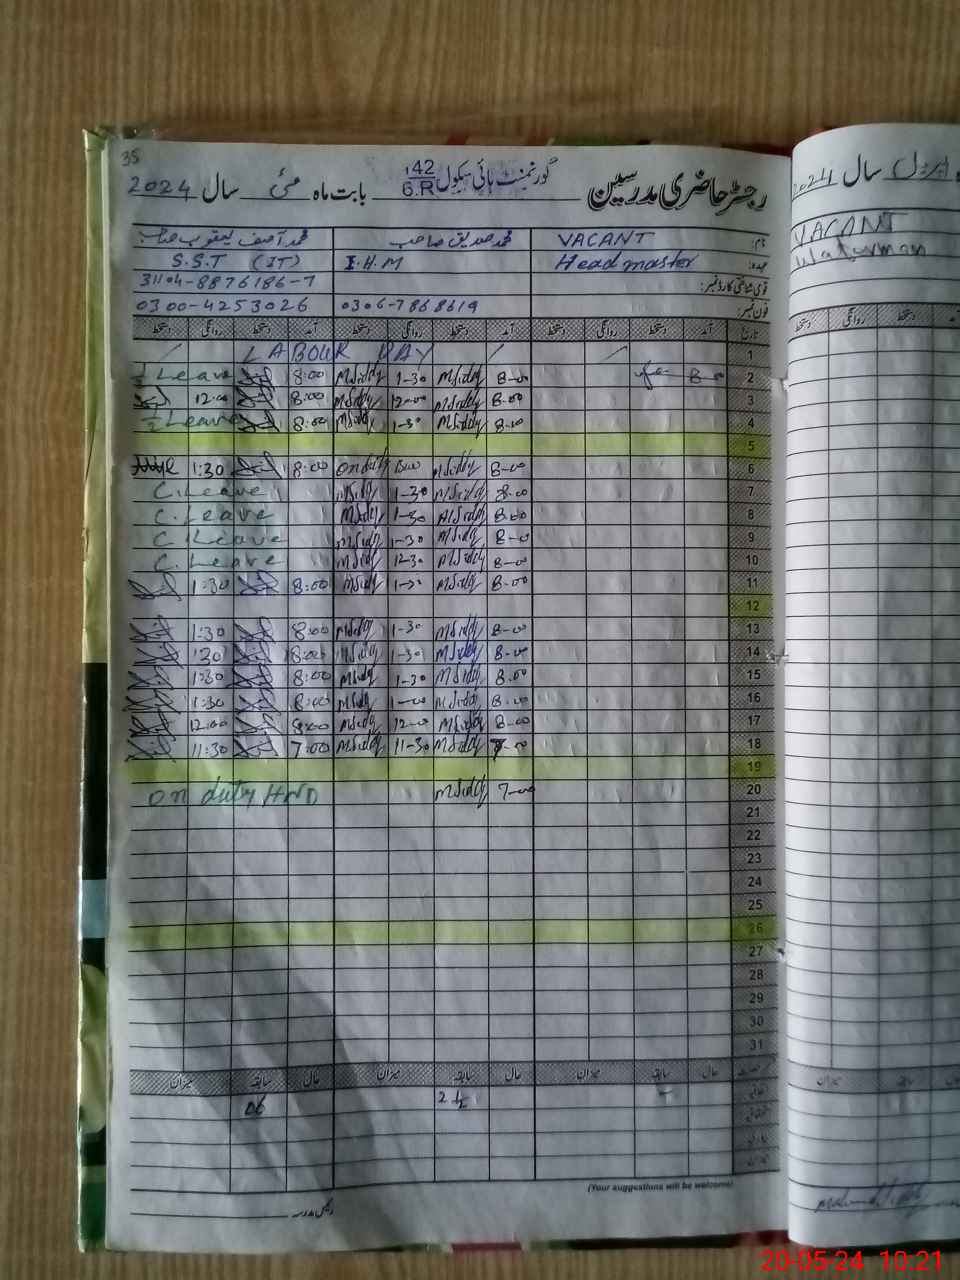 35
رجسٹر حاضری مدرسین گورنمنٹ ہائی سکول 142/6.R بابت ماہ مئی سال 2024
نام: VACANT محمد صدیق صاحب محمد آصف یعقوب صاحب
عہدہ: Head master I.H.M S.S.T (IT)
قومی شناختی کارڈ نمبر: 31104-8876186-7
فون نمبر: 0306-7868619 0300-4253026
تاریخ آمد دستخط روانگی دستخط آمد دستخط روانگی دستخط آمد دستخط روانگی دستخط
1 LABOUR DAY
2 8-00 8-00 MSiddy 1-30 MSiddy 8:00 ½ Leave
3 8-00 MSiddy 12-00 MSiddy 8:00 12:00
4 8-00 MSiddy 1-30 MSiddy 8:00 ½ Leave
5
6 8-00 MSiddy on duty 8:00 1:30
7 8-00 MSiddy 1-30 MSiddy C.Leave
8 8-00 MSiddy 1-30 MSiddy C.Leave
9 8-00 MSiddy 1-30 MSiddy C.Leave
10 8-00 MSiddy 12-30 MSiddy C.Leave
11 8-00 MSiddy MSiddy 8:00 1:30
12
13 8-00 MSiddy 1-30 MSiddy 8:00 1:30
14 8-00 MSiddy 1-30 MSiddy 8:00 1:30
15 8-00 MSiddy 1-30 MSiddy 8:00 1:30
16 8-00 MSiddy 1-00 MSiddy 8:00 1:30
17 8-00 MSiddy 12-00 MSiddy 8:00 12:00
18 7-00 MSiddy 11-30 MSiddy 7:00 11:30
19
20 7-00 MSiddy on duty HND
21
22
23
24
25
26
27
28
29
30
31
حال سابقہ میزان حال سابقہ میزان حال سابقہ میزان
2 ½ 06
(Your suggestions will be welcome)
رئیس مدرسہ
اپریل سال 2024
VACANT
Waterman
دستخط روانگی دستخط
سابقہ میزان
20-05-24 10:21